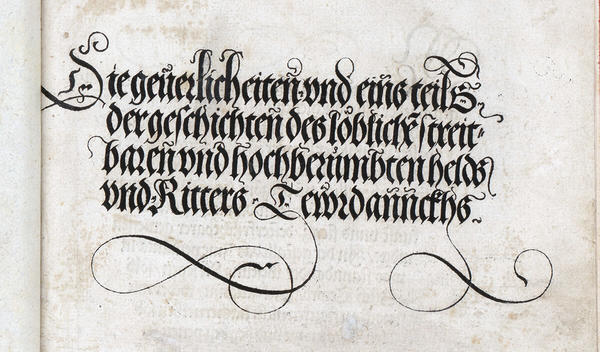 Die geuerlicheiten vnd eins teils
der geschichten des loblichen streit-
baren vnd hochberumbten helds
vnd Ritters Tewrdannckhs